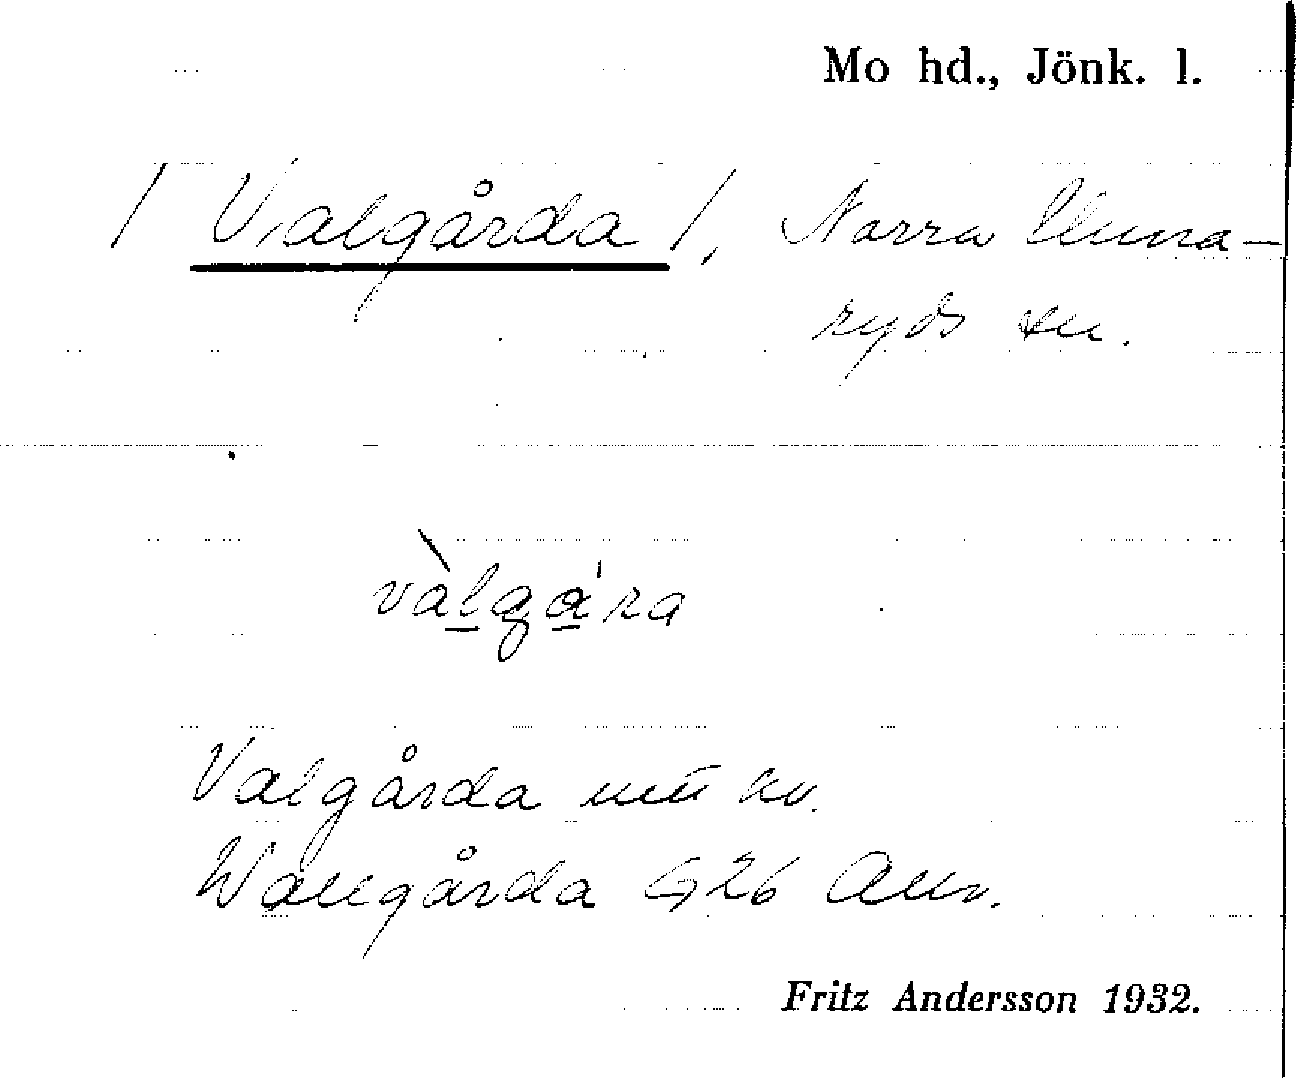 Mo hd., Jönk. l.
/ Valgårda /, Norra Unna-
ryds sn.
vàlgára
Valgårda mtl kv.
Wallgårda G 26 Allm.
Fritz Andersson 1932.